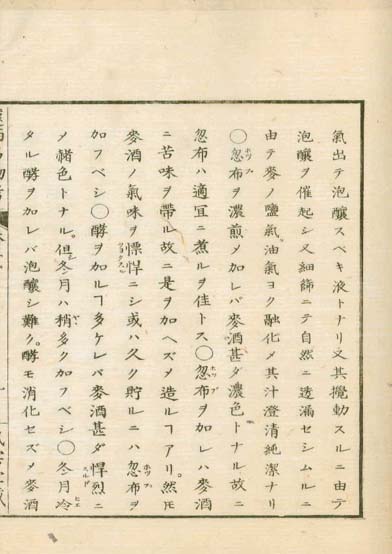 氣出テ泡釀スベキ液トナリ又其攪動スルニ由テ
泡釀ヲ催起シ又細篩ニテ自然ニ透漏セシムルニ
由テ麥ノ鹽氣。油氣ヨク融化メ其汁澄清純潔ナリ
〇忽布ホツプヲ濃煎メ加レバ麥酒甚ダ濃色トナル故ニ
忽布ハ適冝ニ煮ルヲ佳トス〇忽布ホツプヲ加レハ麥酒
ニ苦味ヲ帶ル故ニ是ヲ加ヘズメ造ルヿアリ。然モ
麥酒ノ氣味ヲ慓悍ニシ或ハ久ク貯ルニハ忽布ホツプヲ
加フベシ〇酵ヲ加ルヿ多ケレバ麥酒甚ダ悍烈ニ
メ赭色トナル。但冬月ハ稍ヤヤ多ク加フベシ〇冬月冷ヒエ
タル酵ヲ加レバ泡釀シ難ク。酵モ消化セズメ麥酒